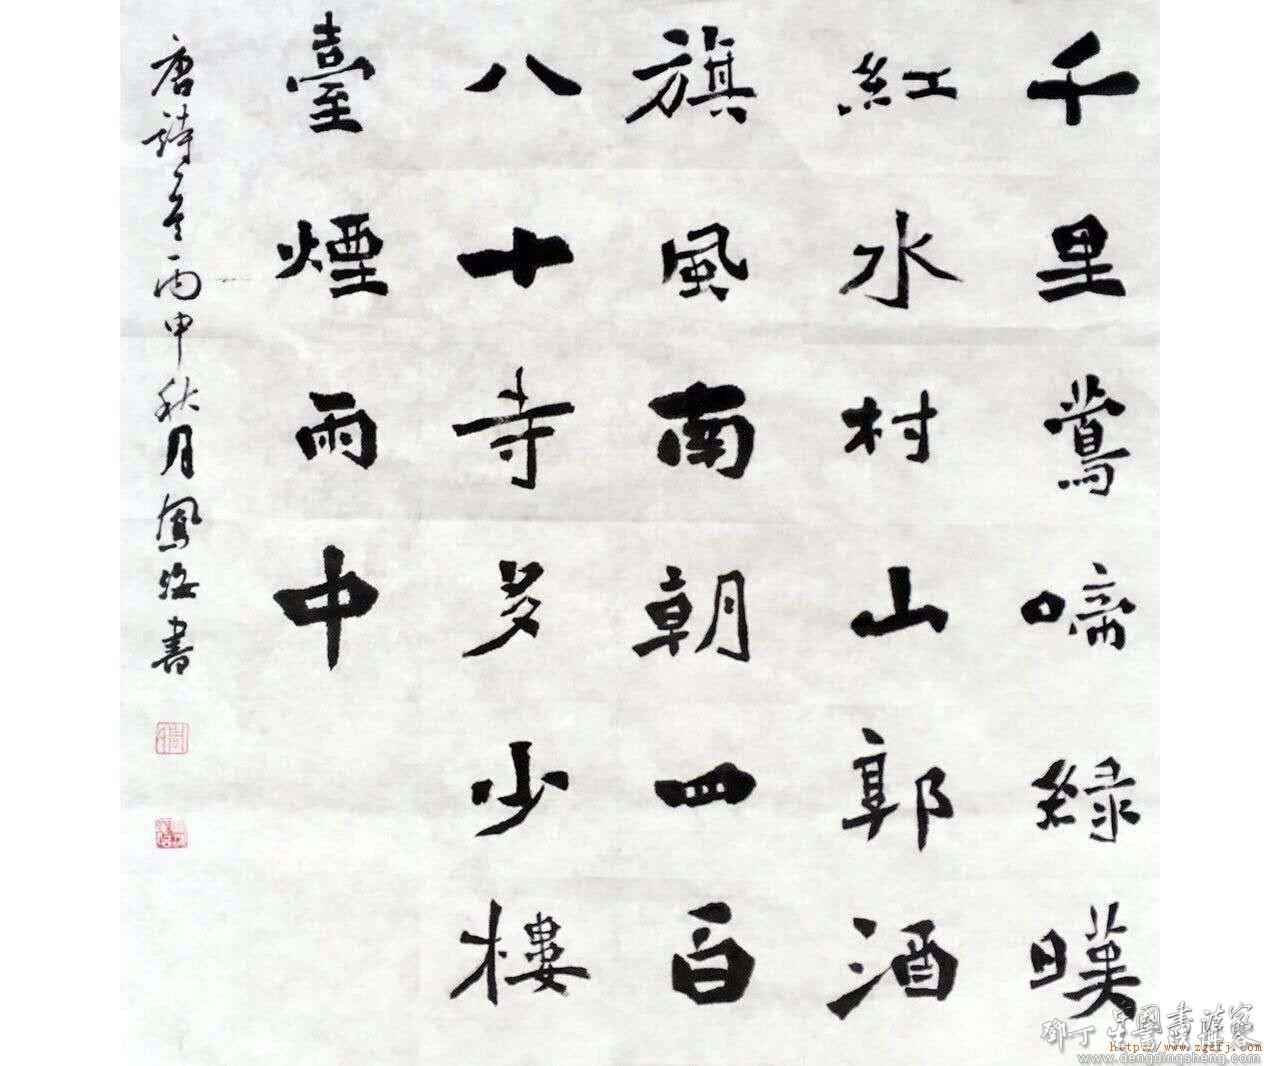 千里鶯啼綠暎
紅水村山郭酒
旗風南朝四百
八十寺多少樓
臺煙雨中
唐詩一首丙申秋月鳳梅書
http://www.zgsfj.com
www.dengdingsheng.com